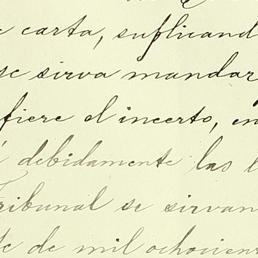 e carta, suplicand
se sirva mandar
fiere el incerto, en
debidamente las l
Tribunal se sirvan
te de mil ochocient